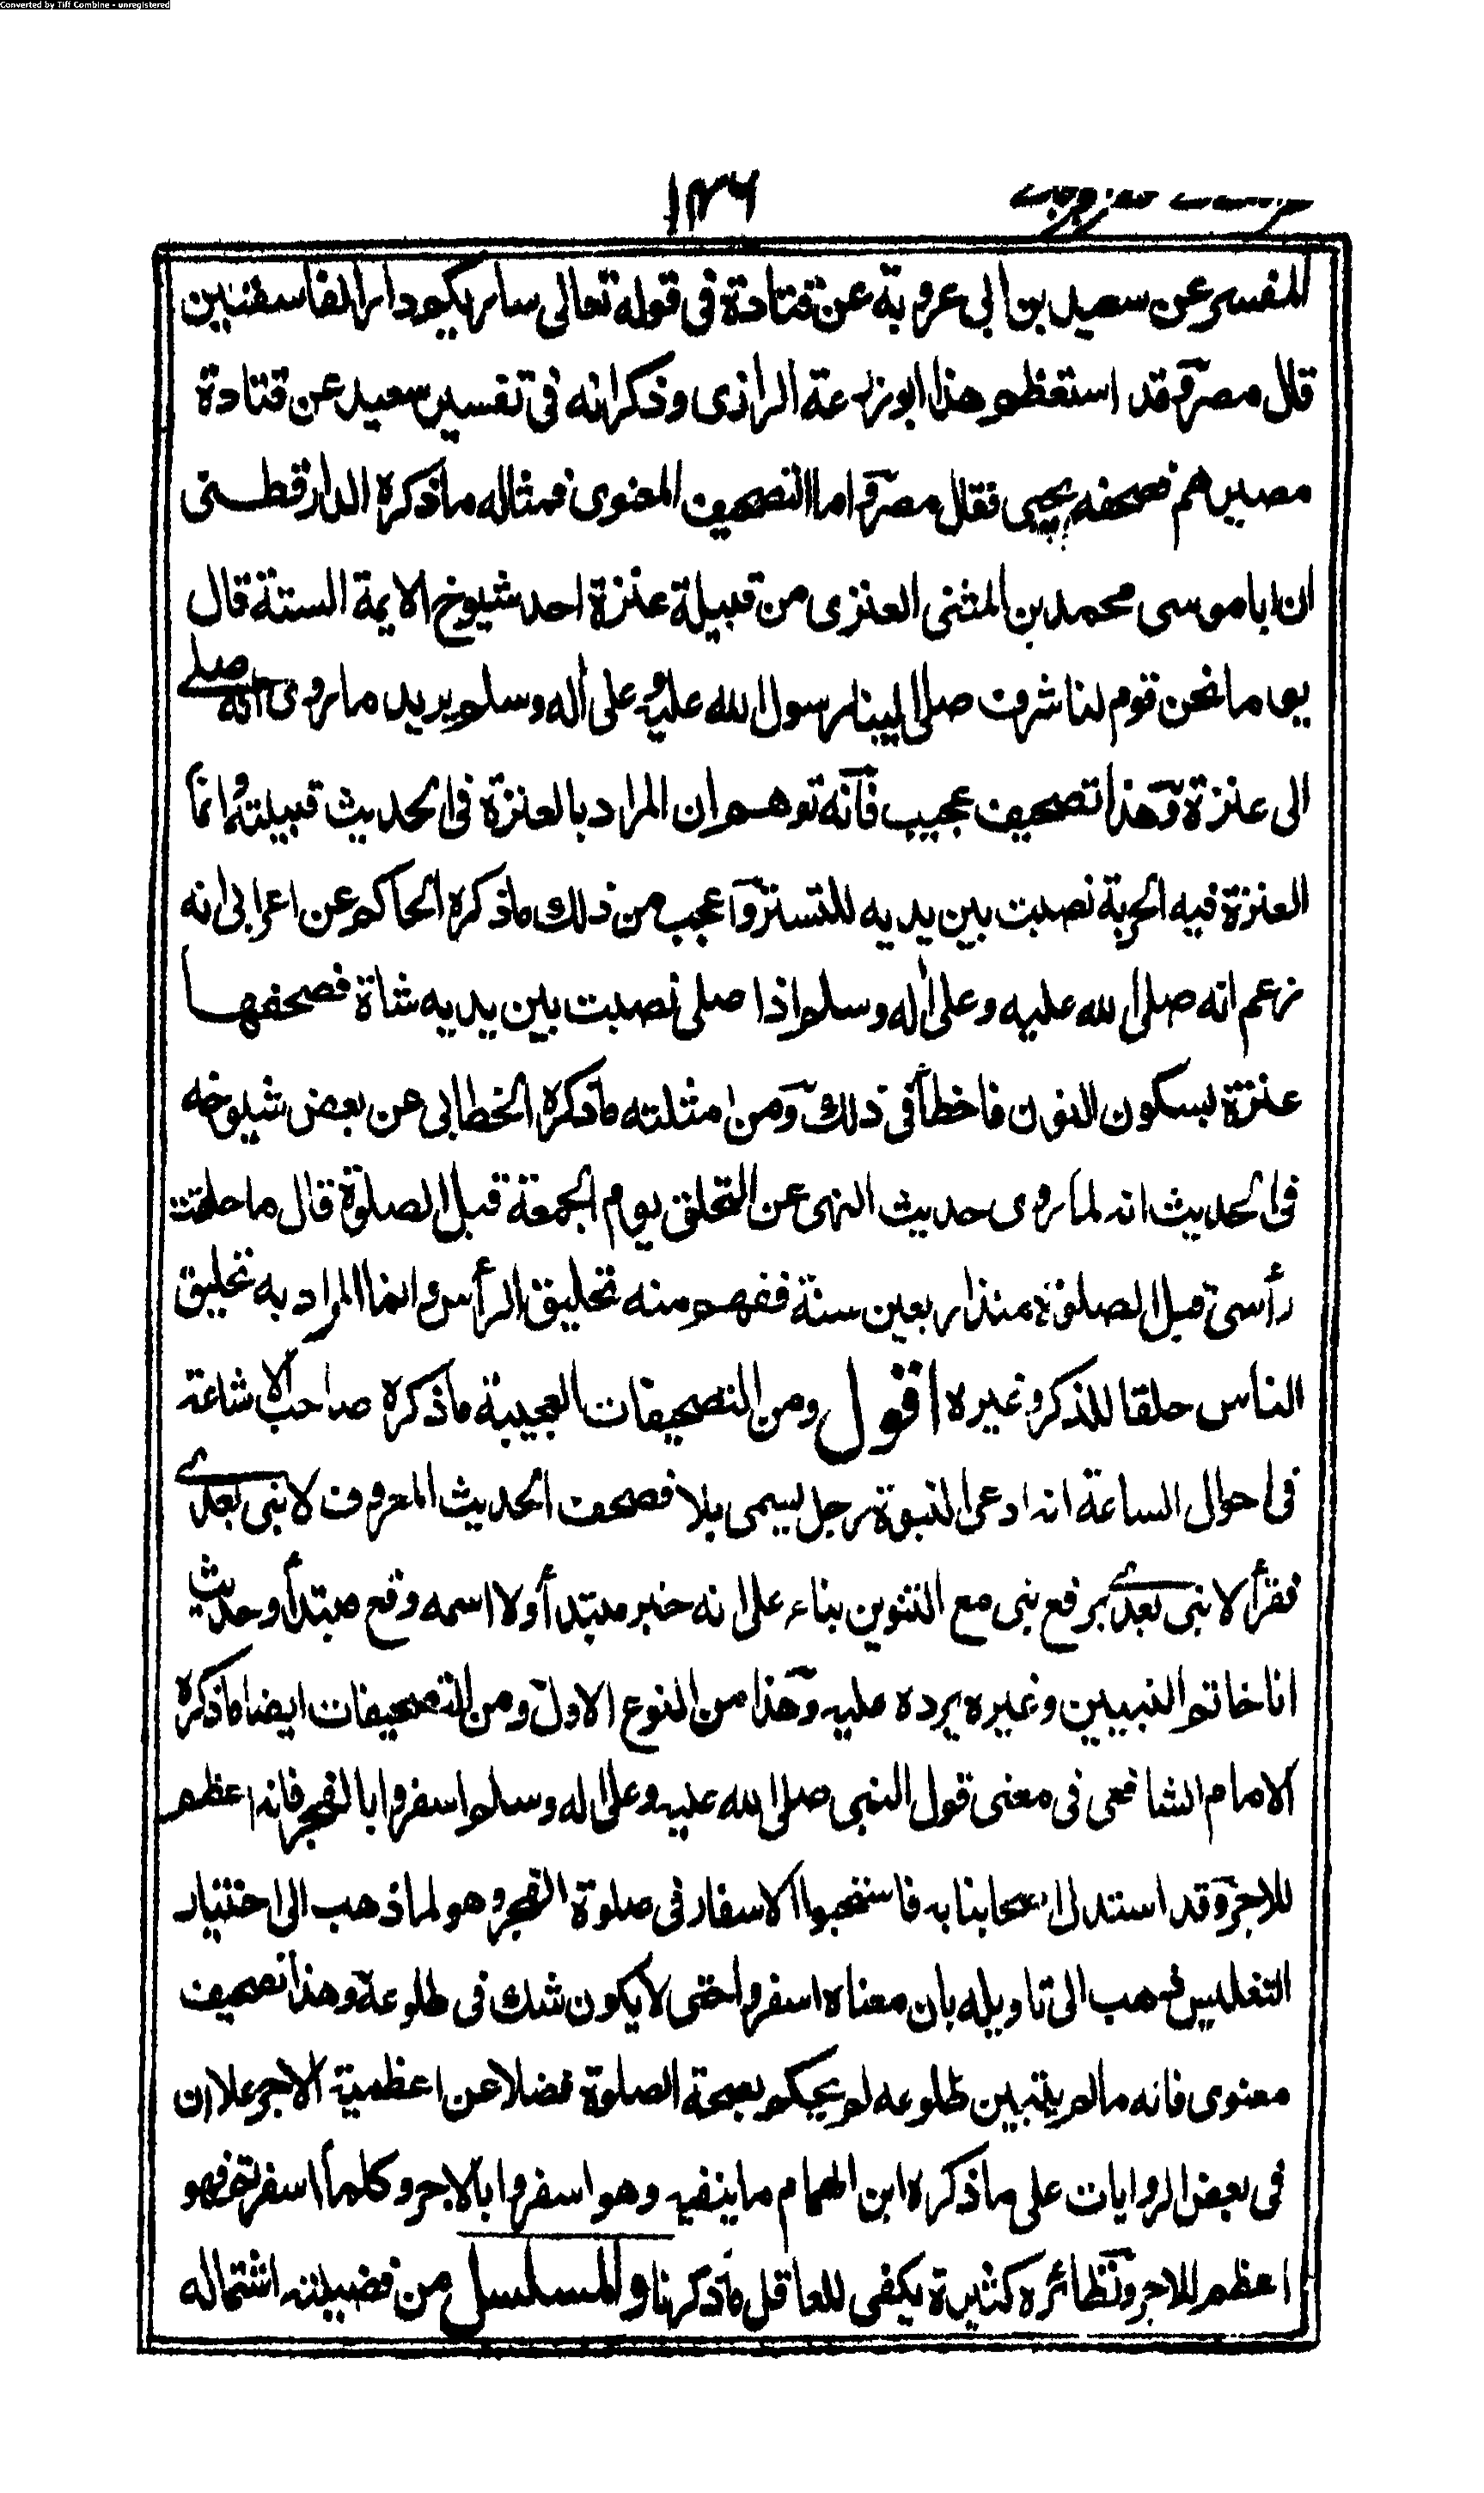 Converted by Tiff Combine - unregistered
١٣٦
المفسر عن سعيد بن ابى عروبة عن قتادة فى قوله تعالى ساريكم دار الفاسقين
قال مصر وقد استعظم هذا ابو زرعة الرازى وذكر انه فى تفسير سعيد عن قتادة
مصيرهم فصحفه يحيى فقال مصر واما التصحيف المعنوى فمثاله ما ذكره الدارقطنى
ان ابا موسى محمد بن المثنى العنزى من قبيلة عنزة احد شيوخ الايمة الستة قال
يوما نحن قوم لنا شرف صلى الينا رسول الله عليه وعلى اله وسلم يريد ما روى انه صلى
الى عنزة وهذا تصحيف عجيب فانه توهم ان المراد بالعنزة فى الحديث قبيلته وانما
العنزة فيه الحربة نصبت بين يديه للتستر واعجب من ذلك ما ذكره الحاكم عن اعرابى انه
زعم انه صلى الله عليه وعلى اله وسلم اذا صلى نصبت بين يديه شاة فصحفها
عنزة بسكون النون فاخطأ فى ذلك ومن امثلته ما ذكره الخطابى عن بعض شيوخه
فى الحديث انه لما روى حديث النهى عن التحلق يوم الجمعة قبل الصلوة قال ما حلقت
رأسى قبل الصلوة منذ اربعين سنة ففهم منه تحليق الرأس وانما المراد به تحليق
الناس حلقا للذكر وغيره اقول ومن التصحيفات العجيبة ما ذكره صاحب الاشاعة
فى احوال الساعة انه ادعى النبوة رجل يسمى بلا فصحف الحديث المعروف لا نبى بعدى
فقرأ لا نبى بعدى برفع نبى مع التنوين بناء على انه خبر مبتدأ ولا اسمه وقع مبتدأ وحديث
انا خاتم النبيين وغيره يرده عليه وهذا من النوع الاول ومن التصحيفات ايضا ما ذكره
الامام الشافعى فى معنى قول النبى صلى الله عليه وعلى اله وسلم اسفروا بالفجر فانه اعظم
للاجر وقد استدل اصحابنا به فاستحبوا الاسفار فى صلوة الفجر وهو لما ذهب الى اختيار
التغليس ذهب الى تاويله بان معناه اسفروا حتى لا يكون شك فى طلوعه وهذا تصحيف
معنوى فانه ما لم يتبين طلوعه لم يحكم بصحة الصلوة فضلا عن اعظمية الاجر علا ان
فى بعض الروايات على ما ذكره ابن الهمام ما ينفيه وهو اسفروا بالاجر وكلما اسفرتم فهو
اعظم للاجر ونظائره كثيرة يكفى للعاقل ما ذكرنا والمسلسل من فضيلته اشتماله